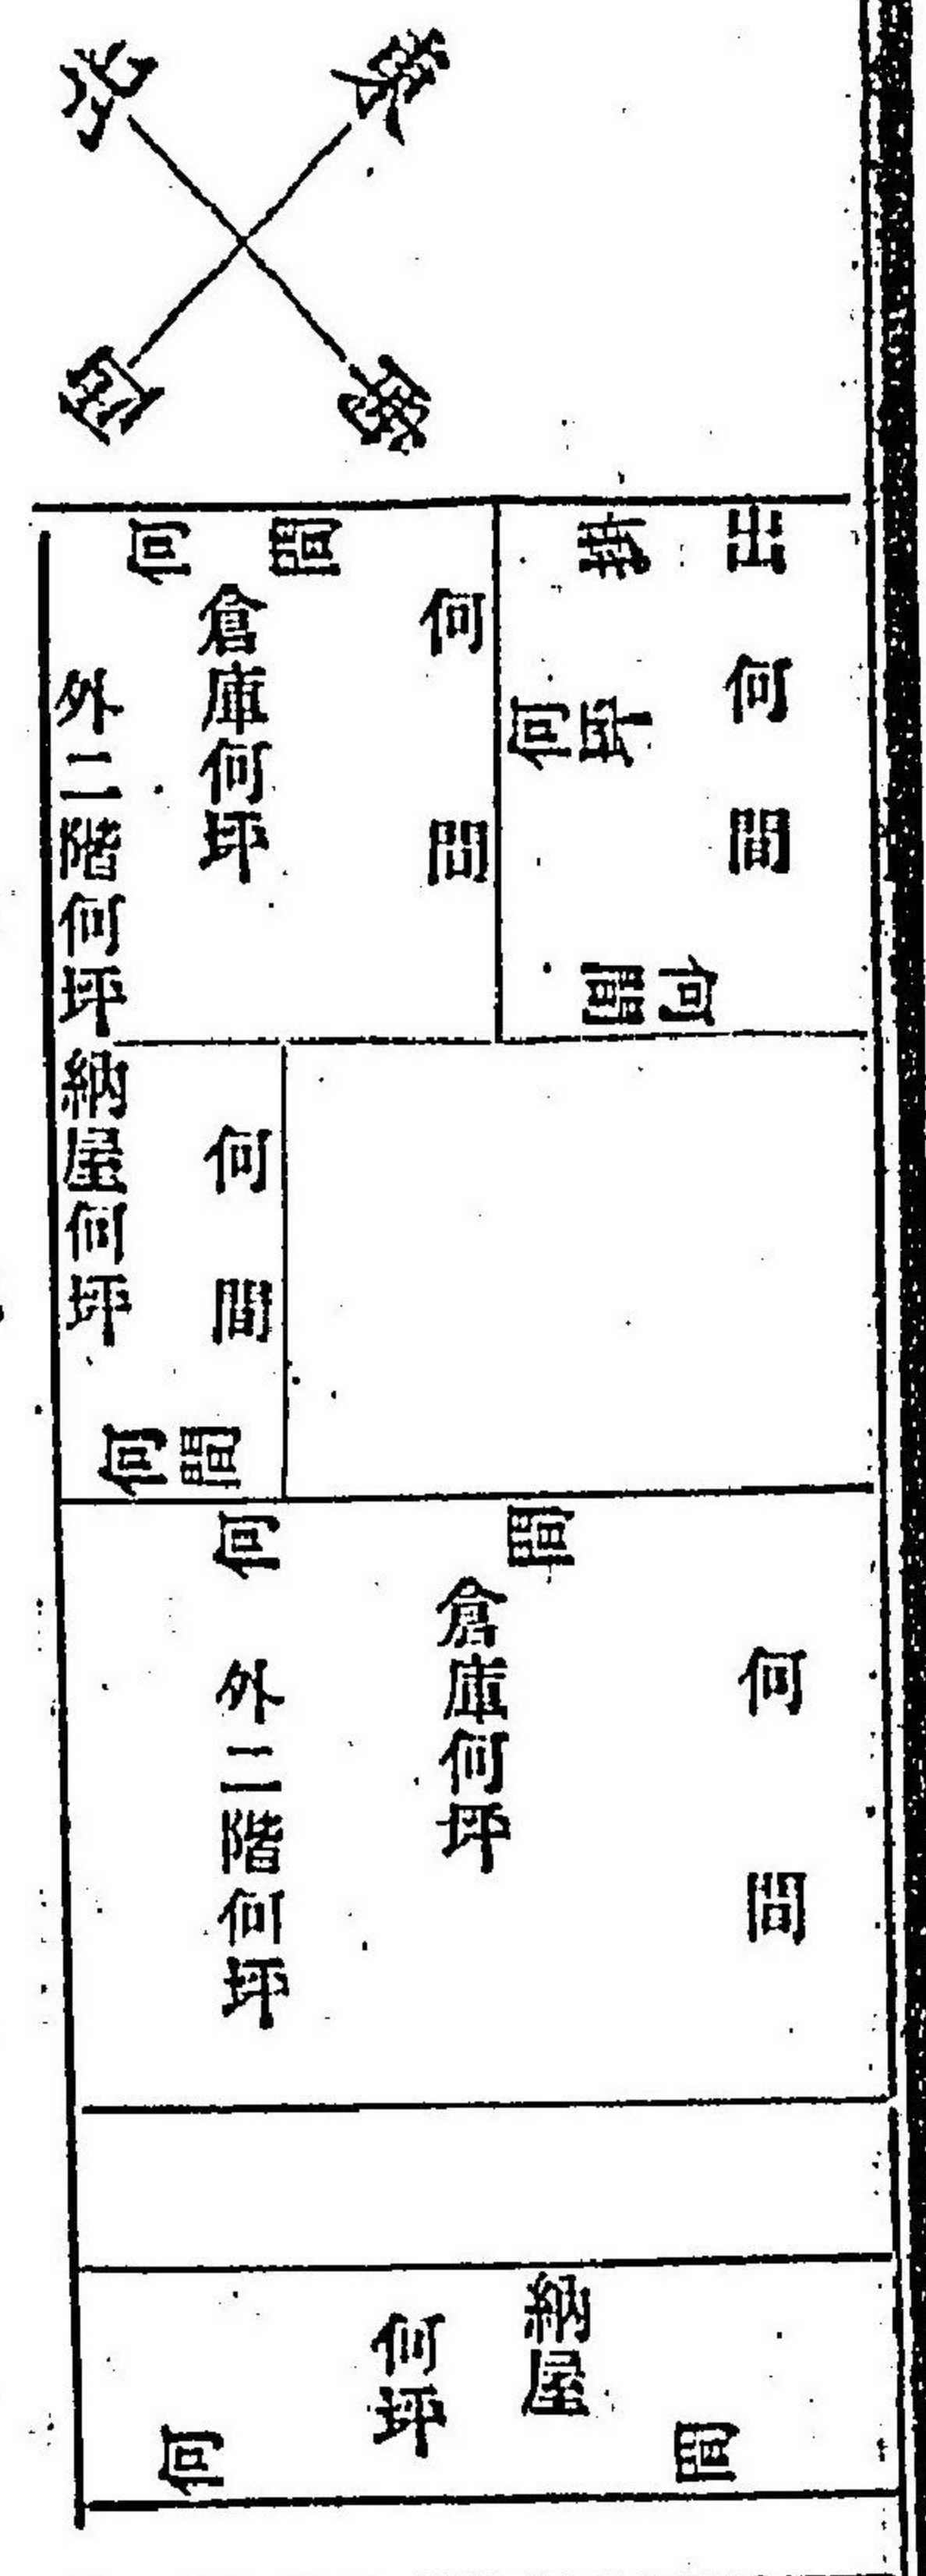 北
東
西
南
出
何間
何間
何坪
何間
何間
倉庫何坪
外二階何坪
何間
納屋何坪
何間
何間
何間
倉庫何坪
外二階何坪
納屋
何坪
何間